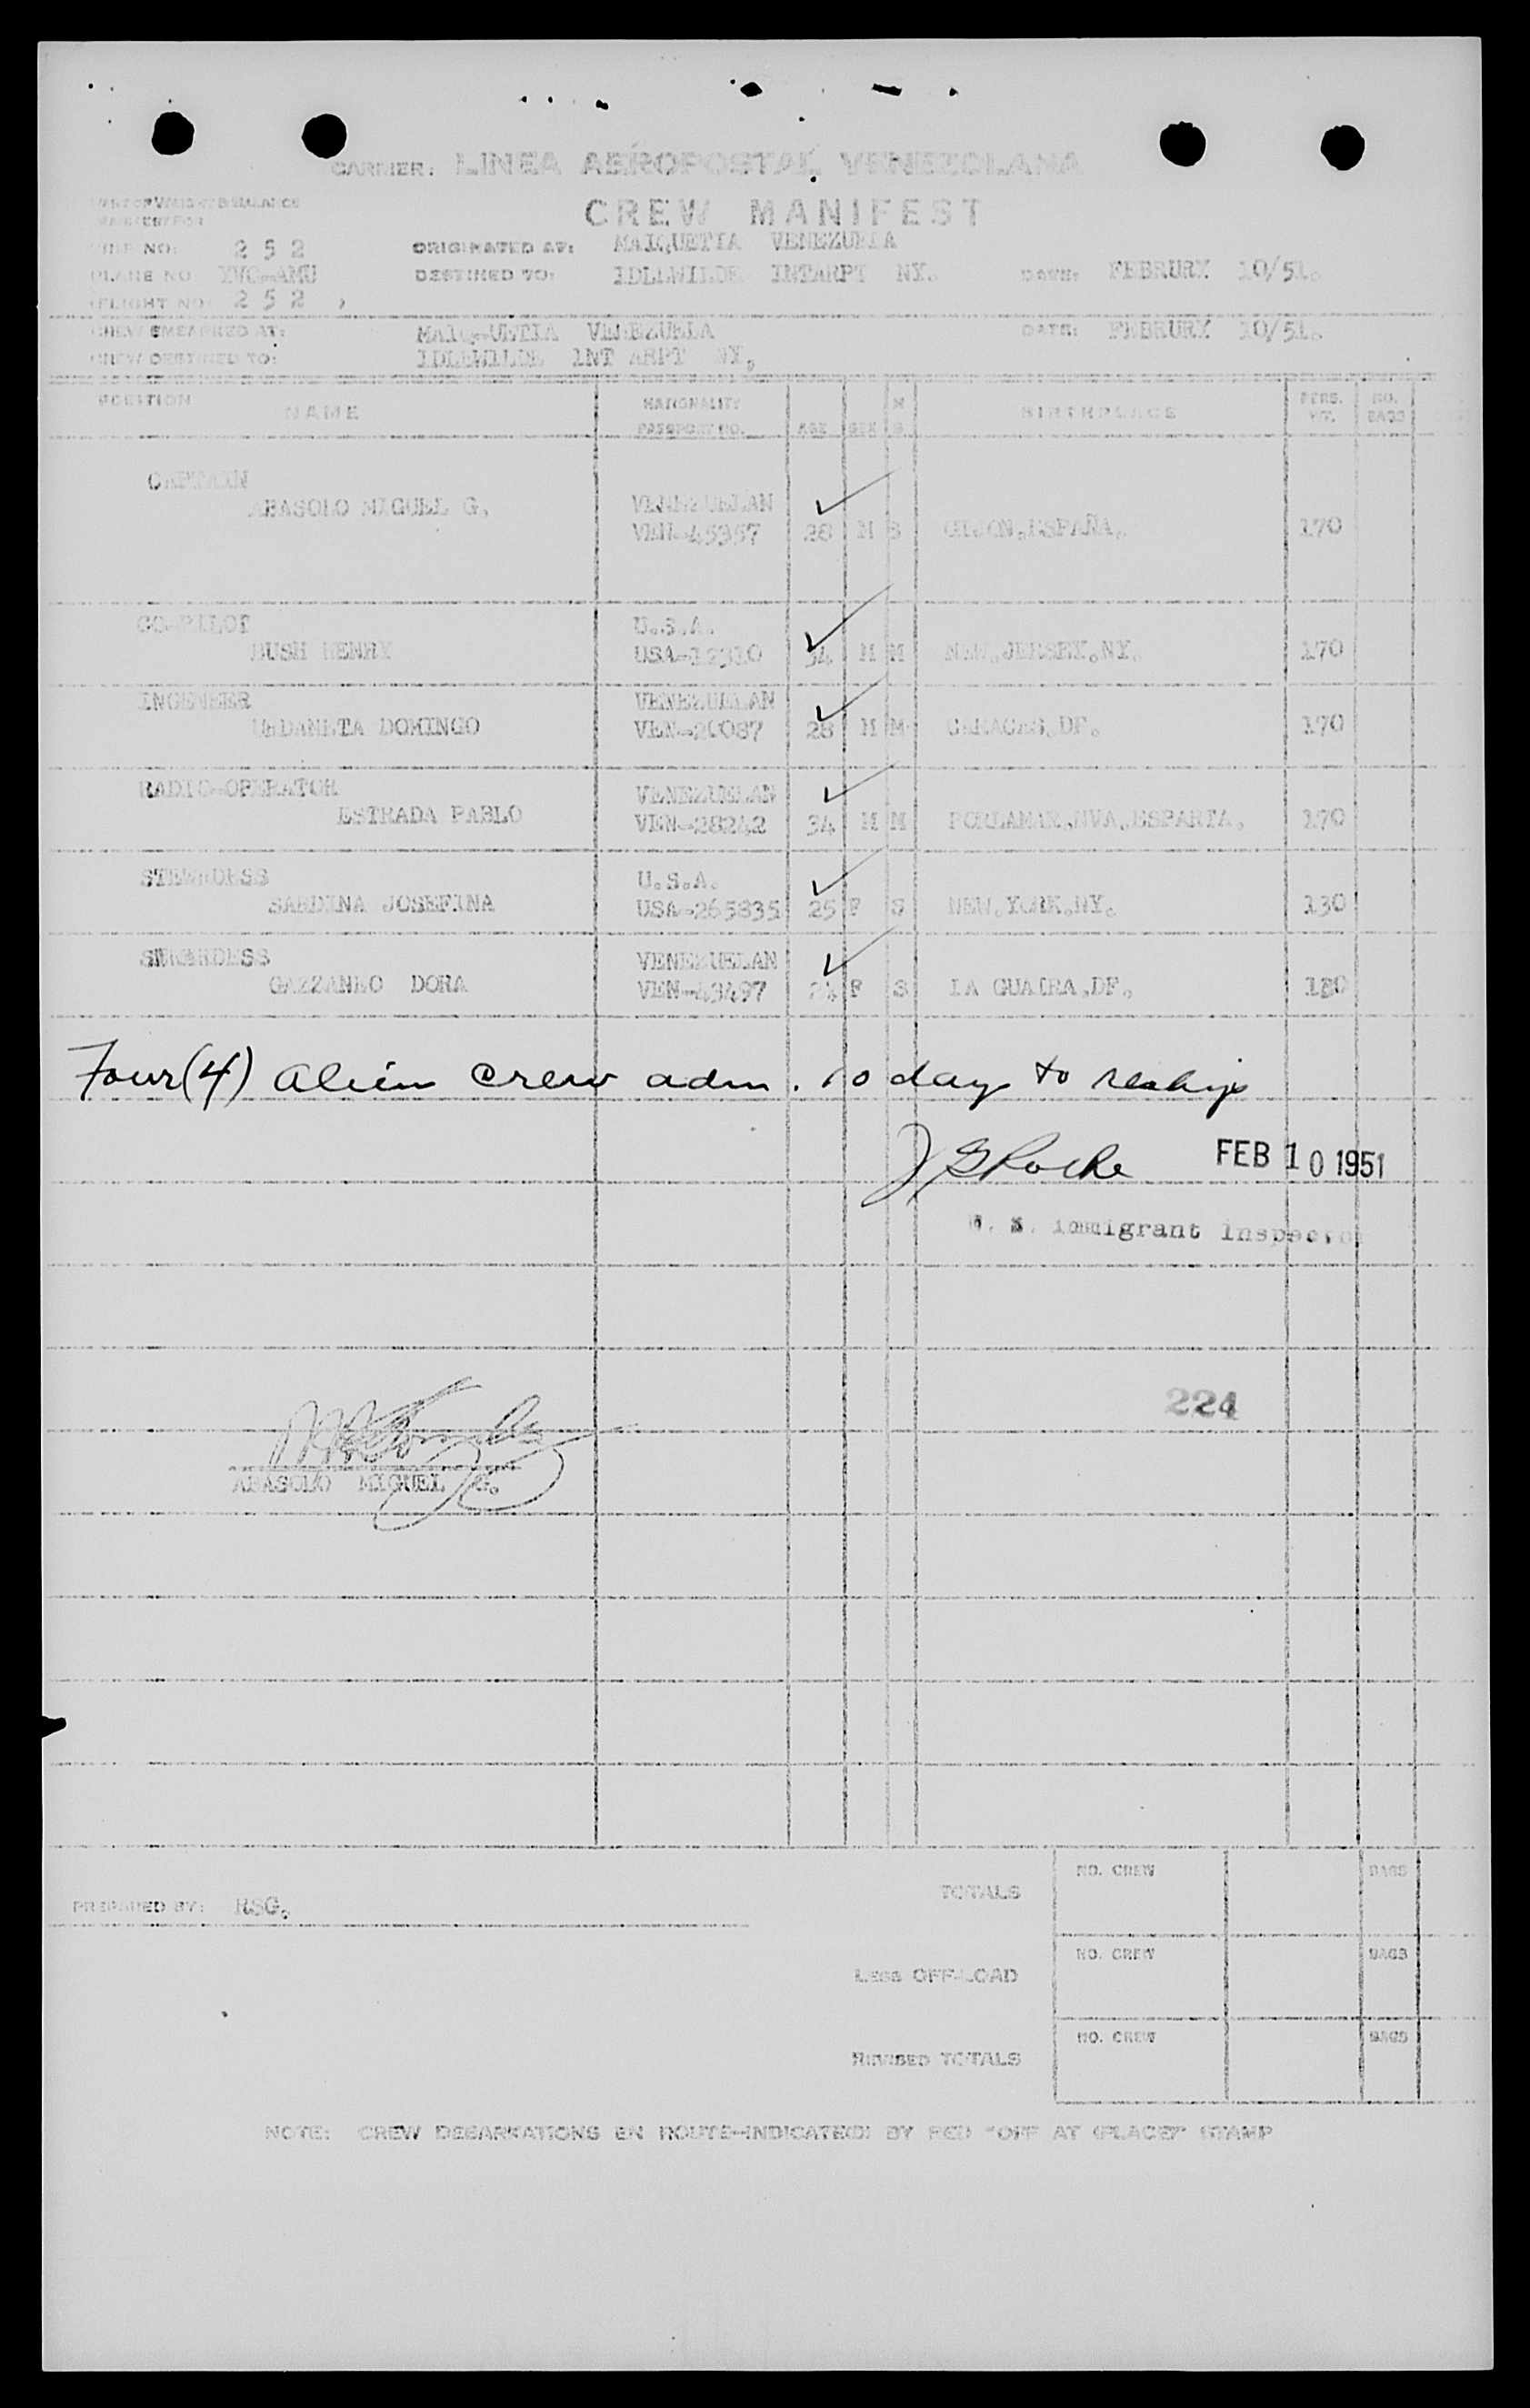 CARRIER: LINEA AEROPOSTAL VENEZOLANA
CREW MANIFEST
TRIP NO: 2 5 2 ORIGINATED AT: MAIQUETIA VENEZUELA
PLANE NO: YVC-AMU DESTINED TO: IDLEWILDE INTARPT NY. DATE: FEBRURY 10/51.
FLIGHT NO: 2 5 2
CREW EMBARKED AT: MAIQ-UETIA VENEZUELA DATE: FEBRURY 10/51.
CREW DESTINED TO: IDLEWILDE INT ARPT NY,
POSITION NAME NATIONALITY PASSPORT NO. AGE SEX M S BIRTHPLACE PERS. WT. NO. BAGS
CAPTAIN
ABASOLO MIGUEL G. VENEZUELAN
VEN-45357 28 M S GIJON,ESPAÑA. 170
CO-PILOT U.S.A.
BUSH HENRY USA-12310 34 M M NEW.JERSEY.NY. 170
INGENEER VENEZUELAN
URDANETA DOMINGO VEN-20087 28 M M CARACAS,DF. 170
RADIO-OPERATOR VENEZUELAN
ESTRADA PABLO VEN-28242 34 M M PORLAMAR,NVA,ESPARTA, 170
STEWRDESS U.S.A.
SARDINA JOSEFINA USA-265835 25 F S NEW.YORK.NY. 130
VENEZUELAN
GAZZANEO DORA VEN-43497 F S LA GUAIRA,DF.
Four (4) alien crew adm. 10 days to reship
J G Roche FEB 10 1951
U. S. immigrant inspector
224
ABASOLO MIGUEL G.
PREPARED BY: RSG. TOTALS NO. CREW BAGS
LESS OFF-LOAD NO. CREW BAGS
REVISED TOTALS NO. CREW BAGS
NOTE: CREW DEBARKATIONS EN ROUTE-INDICATE(D) BY RED "OFF AT (PLACE)" STAMP